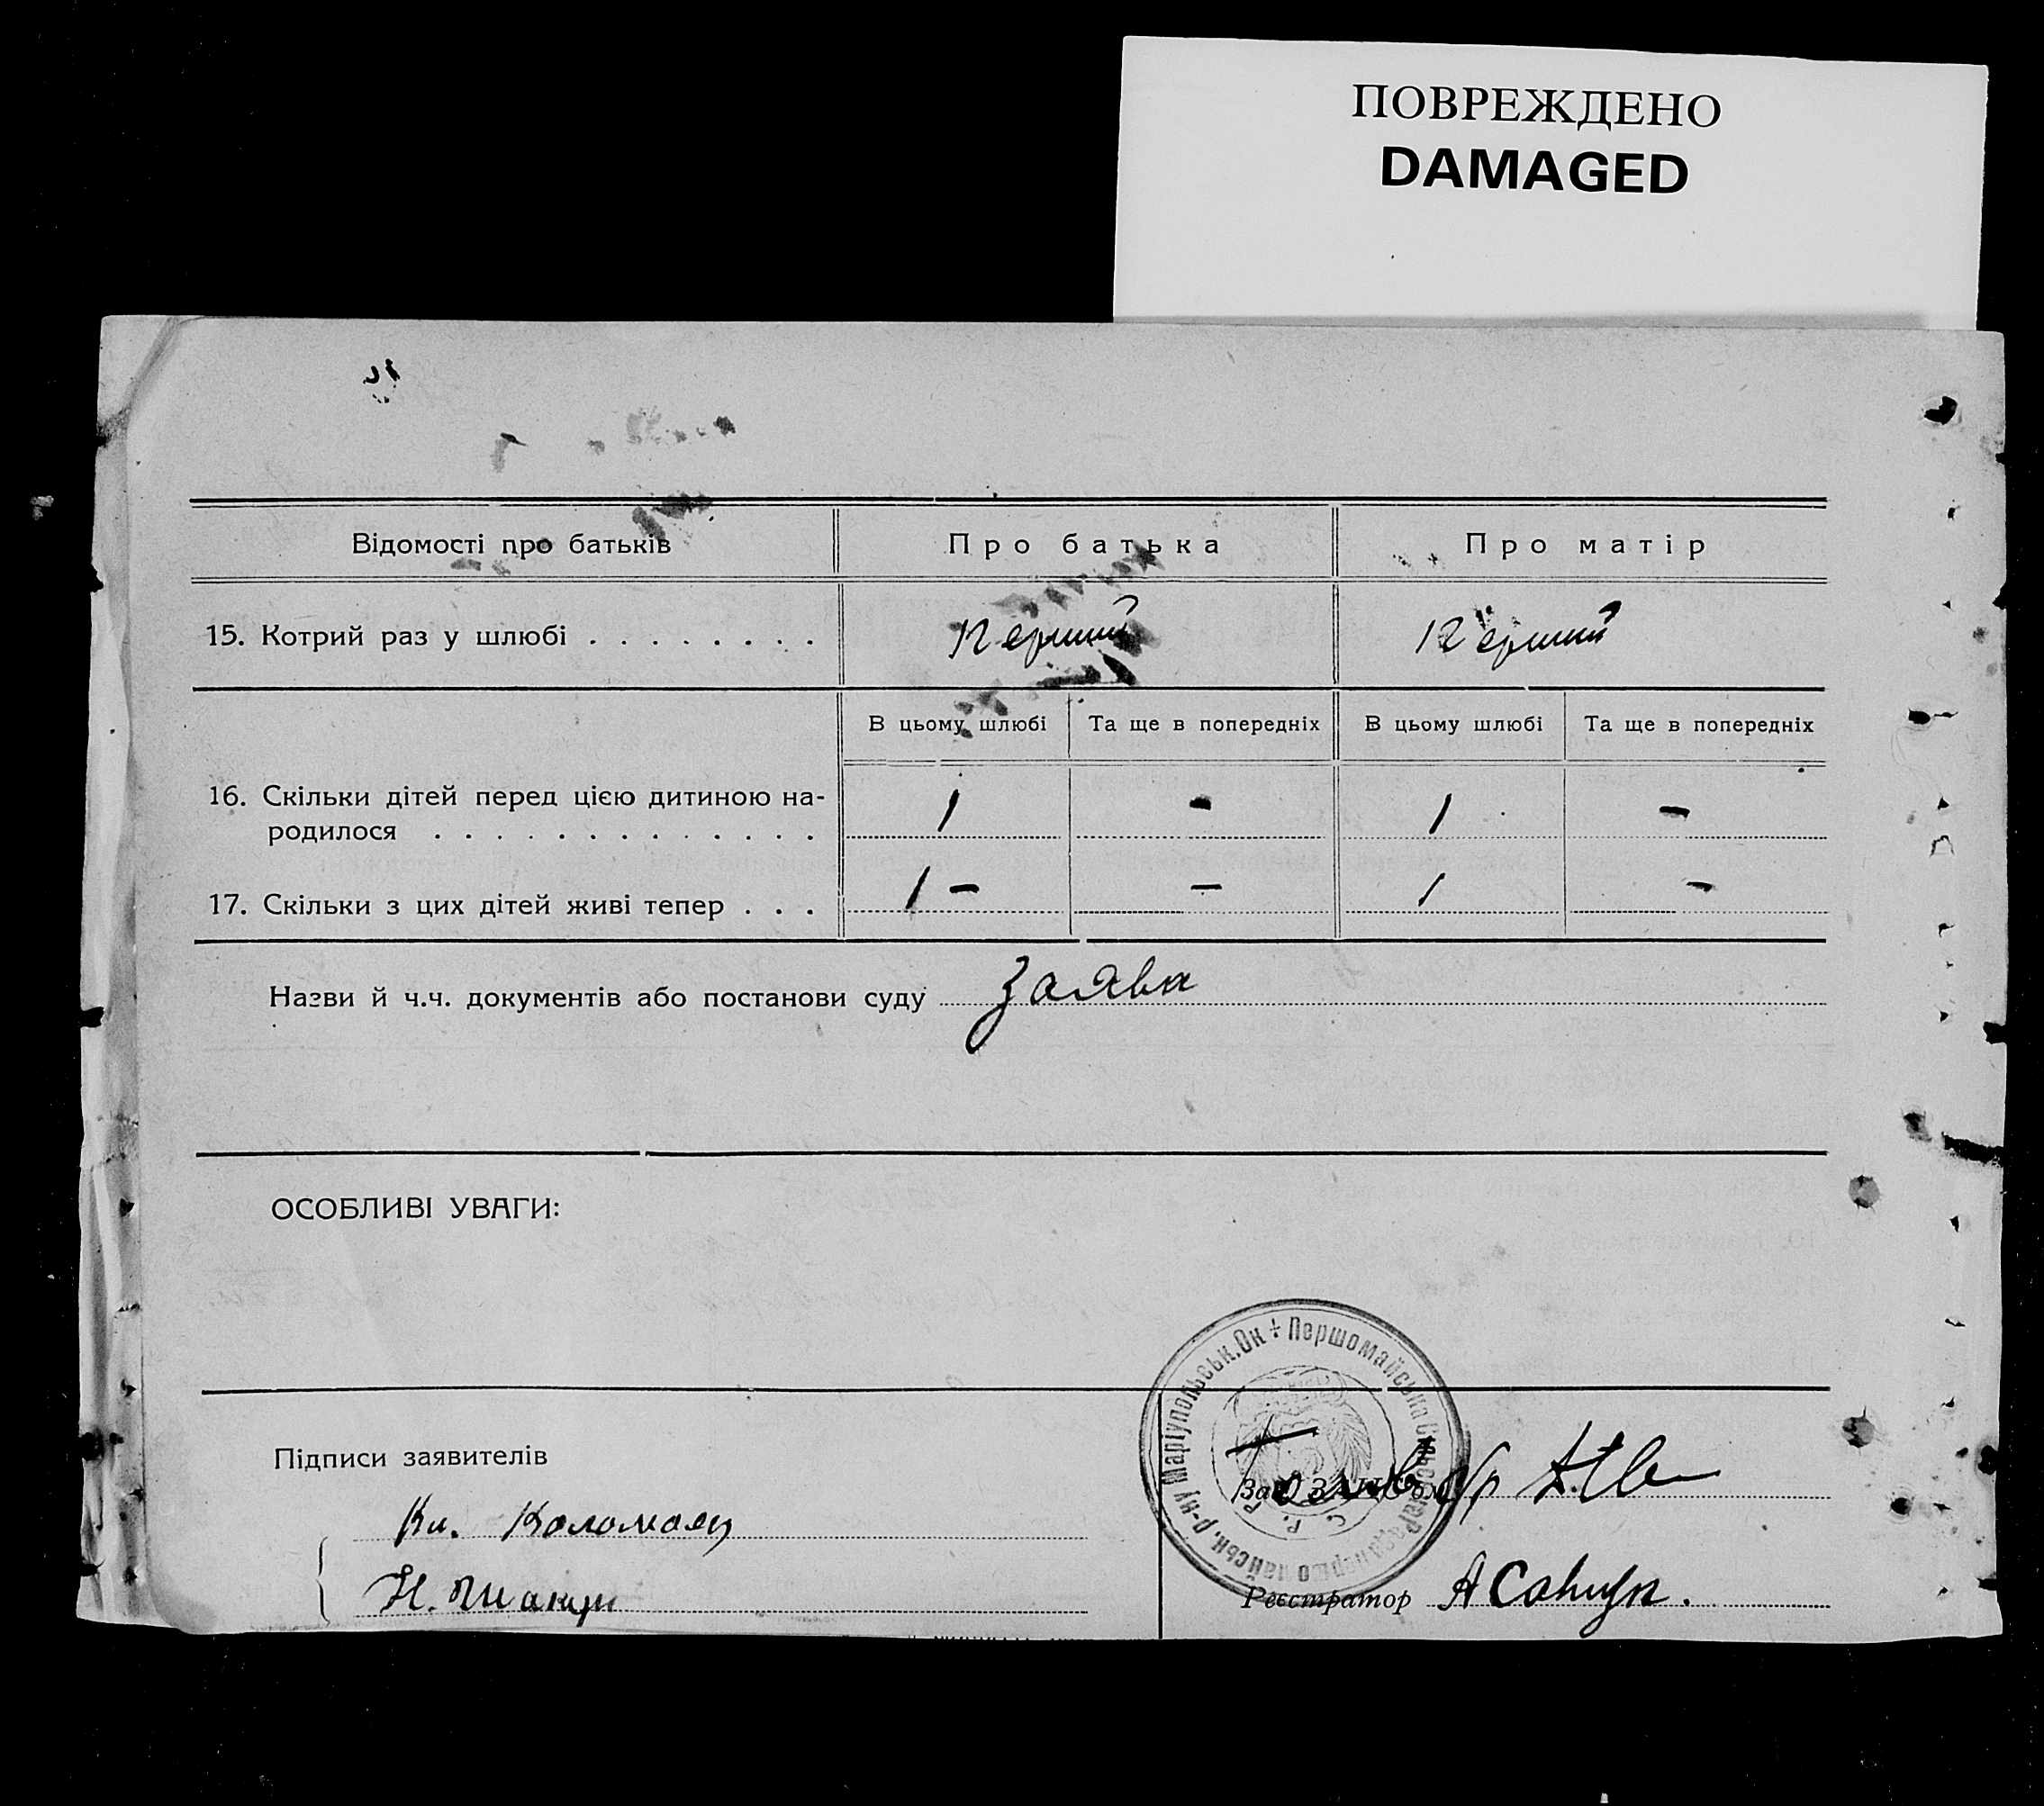 ПОВРЕЖДЕНО
DAMAGED
Відомості про батьків
Про батька
Про матір
15. Котрий раз у шлюбі . . . . . . . .
перший
перший
В цьому шлюбі
Та ще в попередніх
В цьому шлюбі
Та ще в попередніх
16. Скільки дітей перед цією дитиною на-
родилося . . . . . . . . . . . . .
1
-
1
-
17. Скільки з цих дітей живі тепер . . .
1 -
-
1
-
Назви й ч.ч. документів або постанови суду
Заява
ОСОБЛИВІ УВАГИ:
Першомайська
р-ну Маріупольськ. Ок
Підписи заявителів
Голова
Кн. Коломоец
Реєстратор